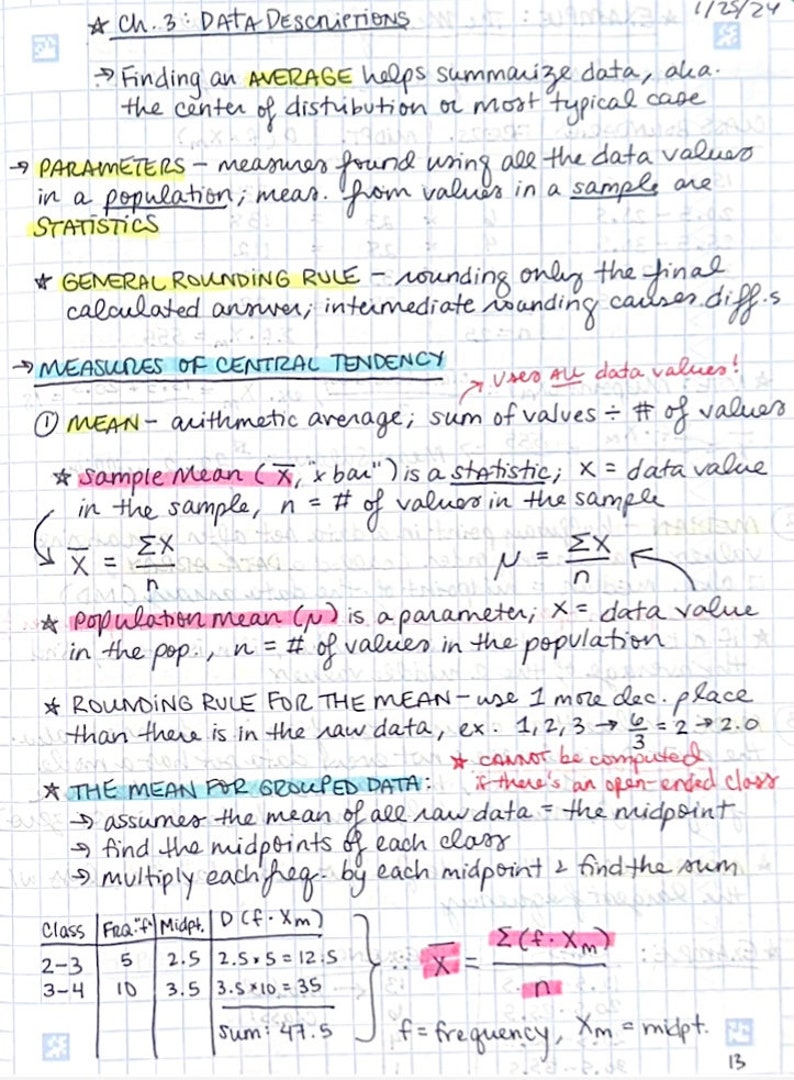 1/25/24
☆ Ch. 3: DATA DESCRIPTIONS
→ Finding an AVERAGE helps summarize data, aka.
the center of distribution or most typical case
→ PARAMETERS – measures found using all the data values
in a population; meas. from values in a sample are
STATISTICS
☆ GENERAL ROUNDING RULE – rounding only the final
calculated answer; intermediate rounding causes diff.s
→ MEASURES OF CENTRAL TENDENCY
→ uses ALL data values!
① MEAN – arithmetic average; sum of values ÷ # of values
☆ Sample Mean (X̅, "x bar") is a statistic; X = data value
in the sample, n = # of values in the sample
X̅ = ΣX / n    μ = ΣX / n
☆ Population mean (μ) is a parameter; X = data value
in the pop., n = # of values in the population
☆ ROUNDING RULE FOR THE MEAN – use 1 more dec. place
than there is in the raw data, ex. 1, 2, 3 → 6/3 = 2 → 2.0
☆ CANNOT be computed
if there's an open-ended class
☆ THE MEAN FOR GROUPED DATA:
→ assumes the mean of all raw data = the midpoint
→ find the midpoints of each class
→ multiply each freq. by each midpoint & find the sum
Class | FRQ. "f" | Midpt. | D (f · Xm)
2-3 | 5 | 2.5 | 2.5 × 5 = 12.5
3-4 | 10 | 3.5 | 3.5 × 10 = 35
Sum: 47.5
∴ X̅ = Σ(f · Xm) / n
f = frequency, Xm = midpt.
13